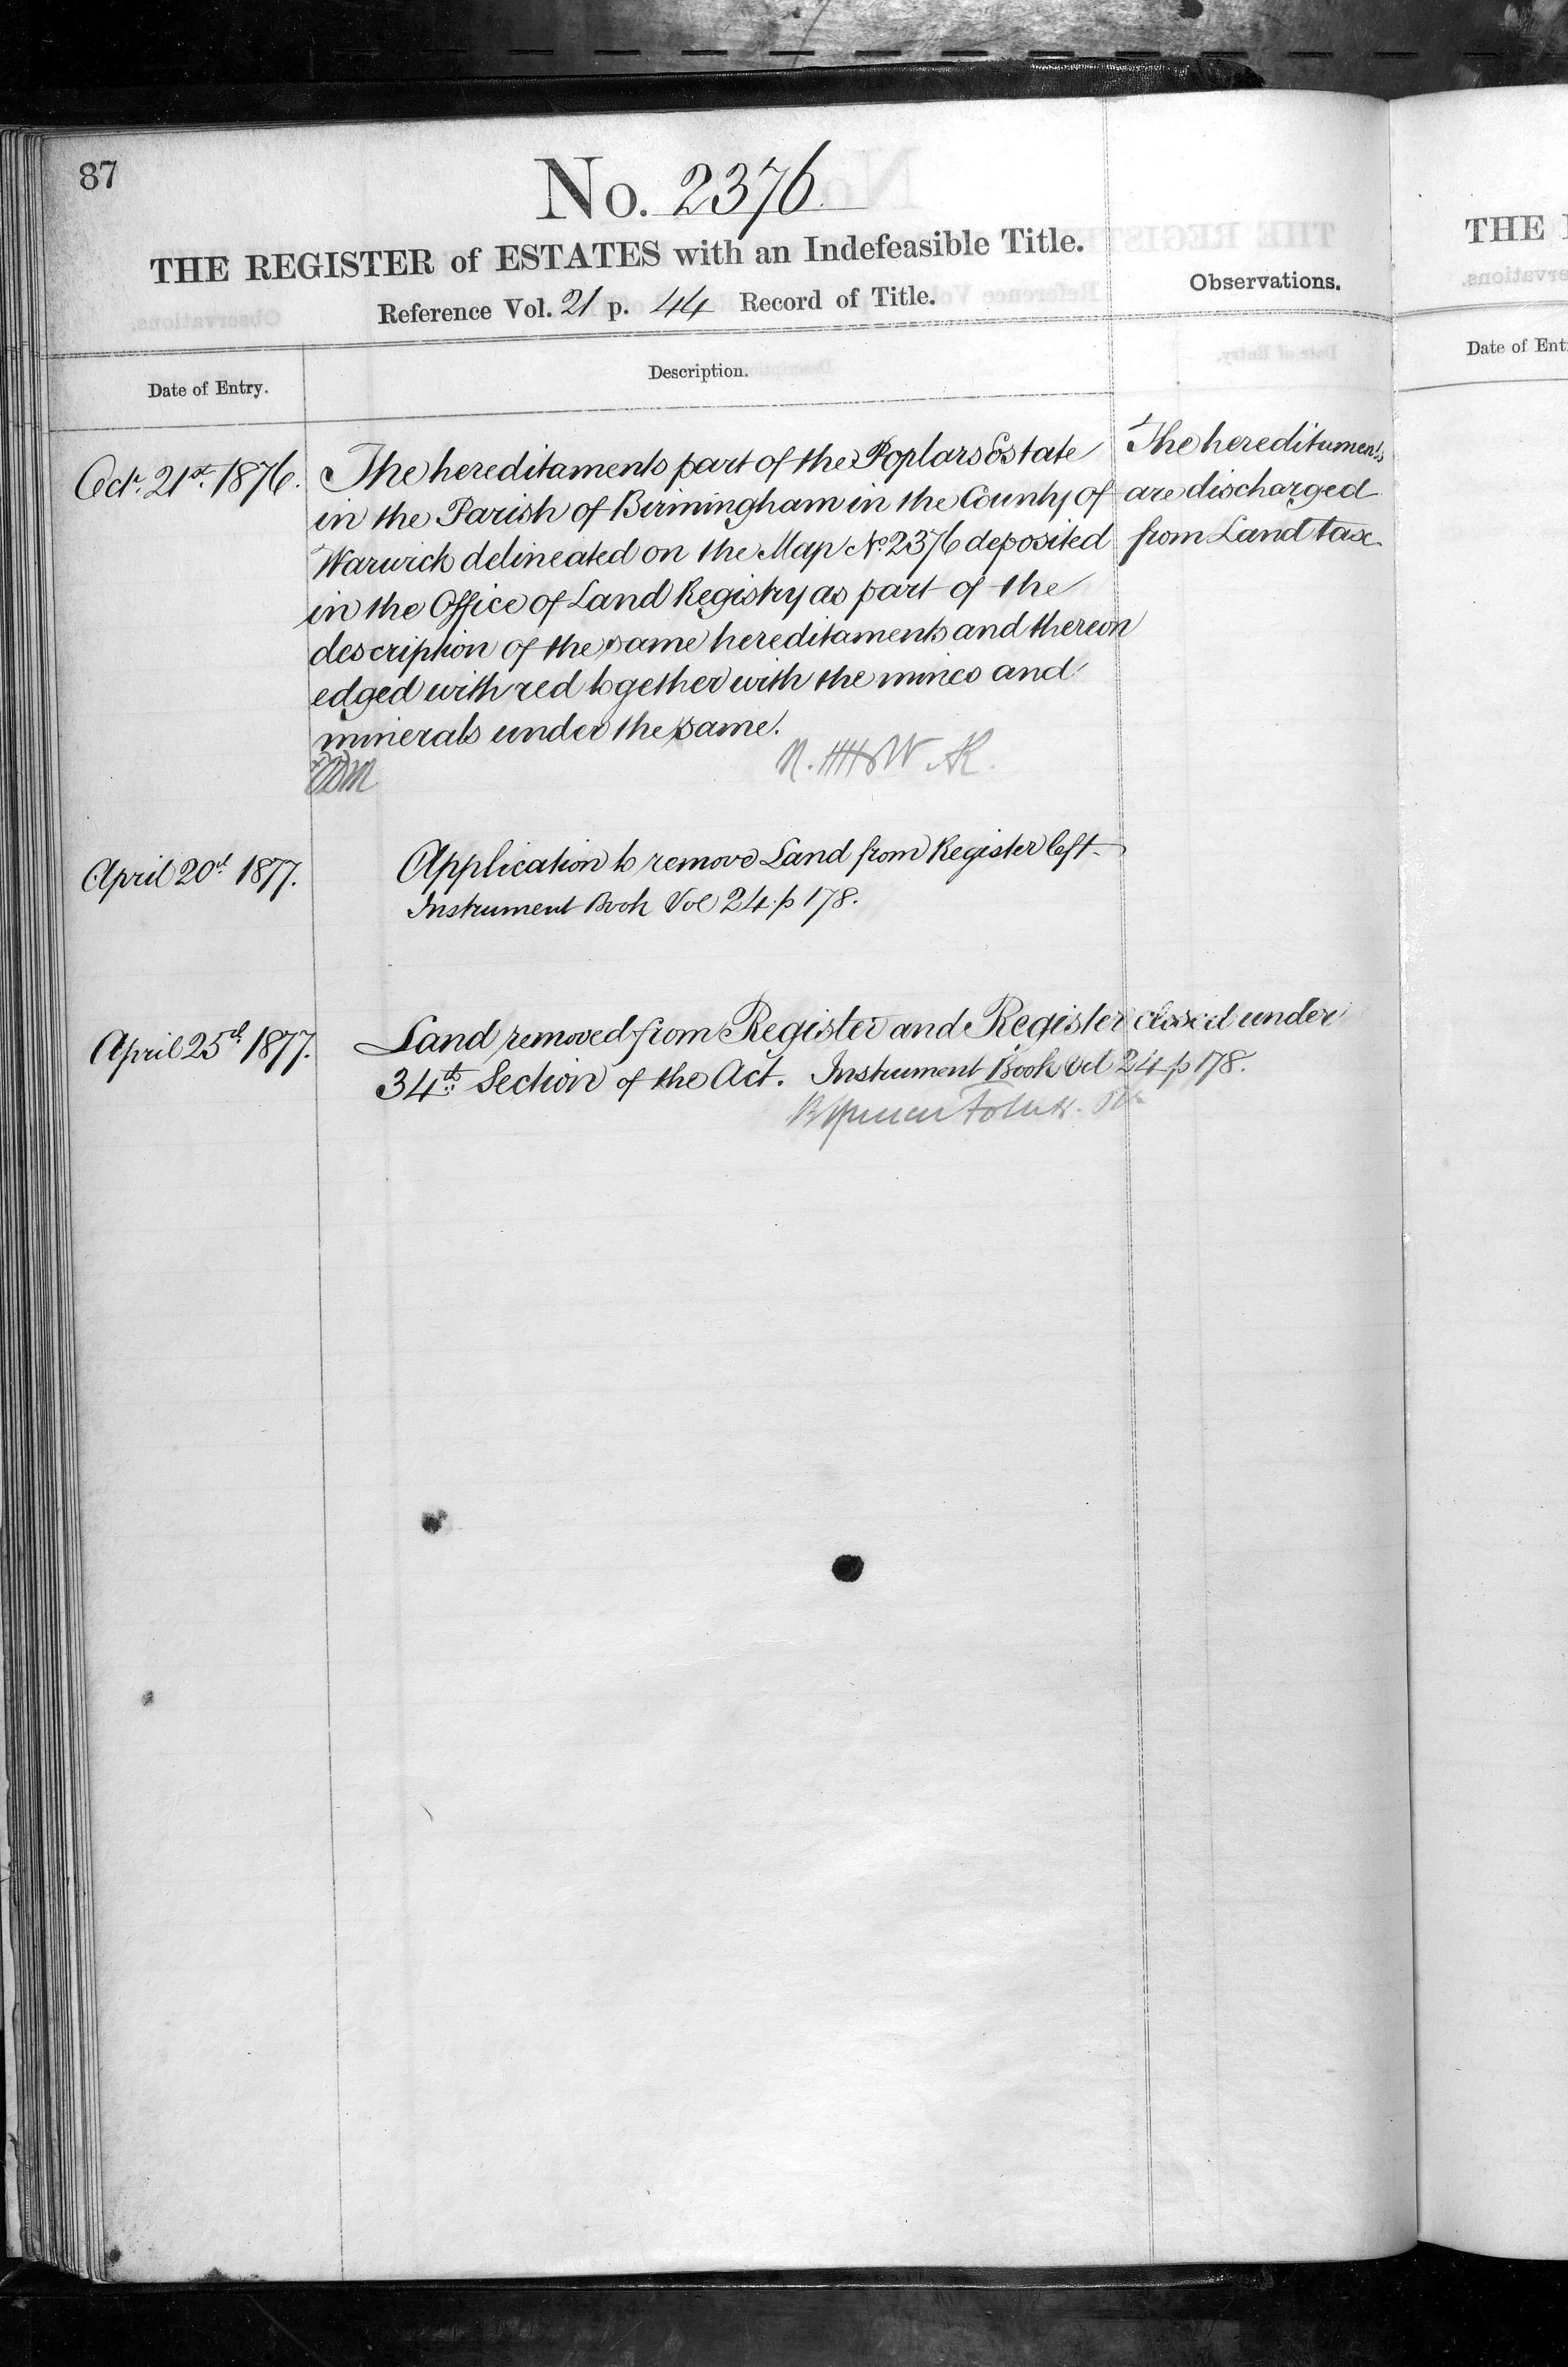 87
No. 2376
THE REGISTER of ESTATES with an Indefeasible Title.
Reference Vol. 21 p. 44 Record of Title.
Observations.
Date of Entry.
Description.
Octr. 21st. 1876.
The hereditaments part of the Poplars Estate
in the Parish of Birmingham in the County of
Warwick delineated on the Map No 2376 deposited
in the Office of Land Registry as part of the
description of the same hereditaments and thereon
edged with red together with the mines and
minerals under the same.
The hereditaments
are discharged
from Land tax.
April 20th 1877.
Application to remove Land from Register left.
Instrument Book Vol 24 p 178.
April 25th 1877.
Land removed from Register and Register closed under
34th. Section of the Act. Instrument Book Vol 24 p 178.
THE
Date of Ent